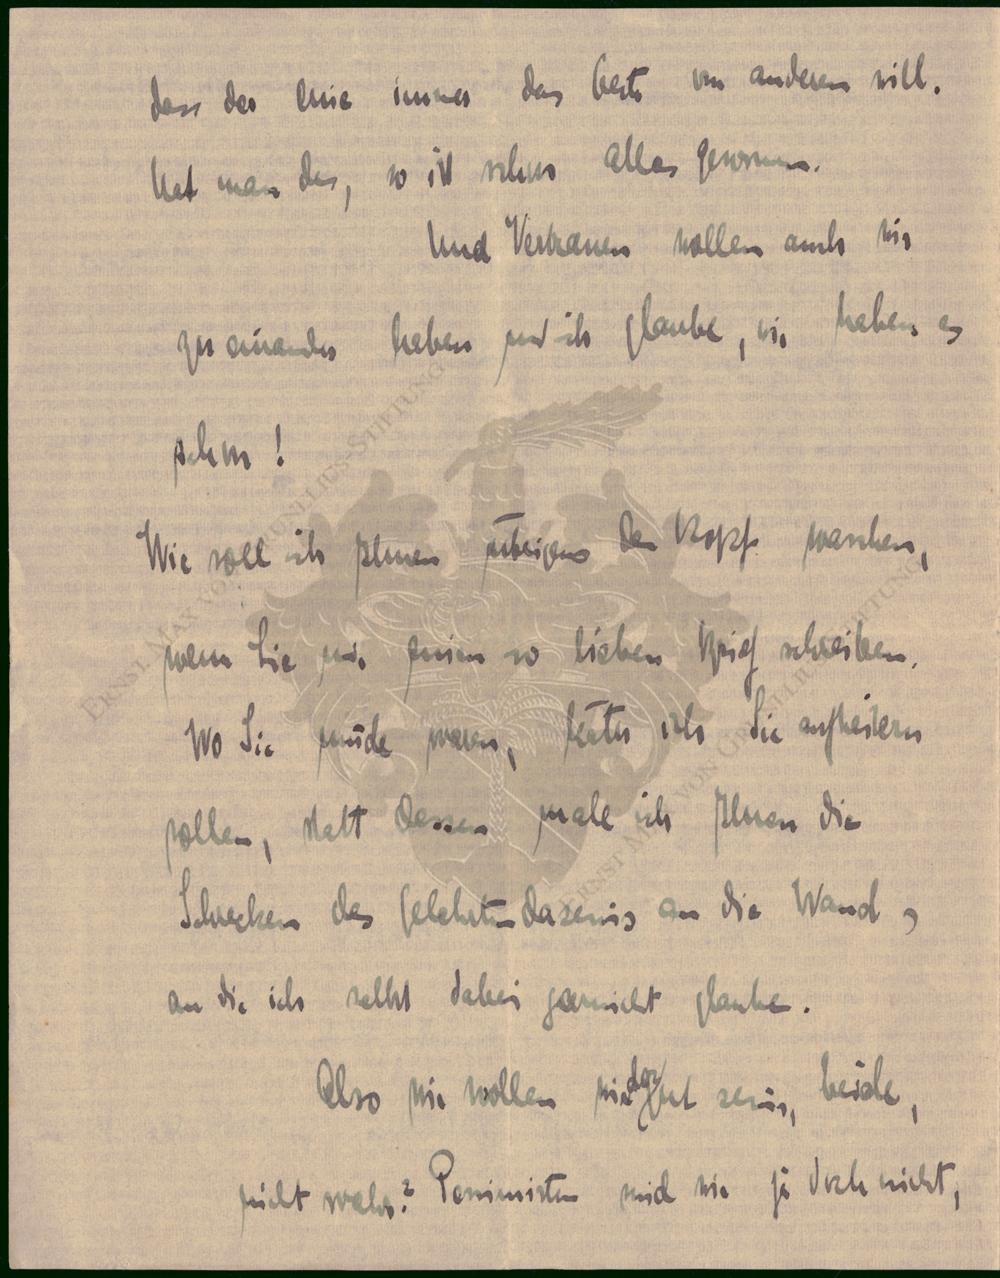 dass der eine immer das beste vom anderen will.
Hat man das, so ist schon alles gewonnen.
Und Vertrauen wollen auch wir
zu einander haben und ich glaube, wir haben es
schon!
Wie soll ich Ihnen übrigens den Kopf waschen,
wenn Sie mir einen so lieben Brief schreiben.
Wo Sie müde waren, hätte ich Sie aufheitern
sollen, statt dessen male ich Ihnen die
Schrecken des Gelehrtendaseins an die Wand,
an die ich selbst dabei garnicht glaube.
Also wir wollen gut sein, beide,
nicht wahr? Pessimisten sind wir ja doch nicht,
ERNST MAX VON GRUNELIUS-STIFTUNG
ERNST MAX VON GRUNELIUS-STIFTUNG